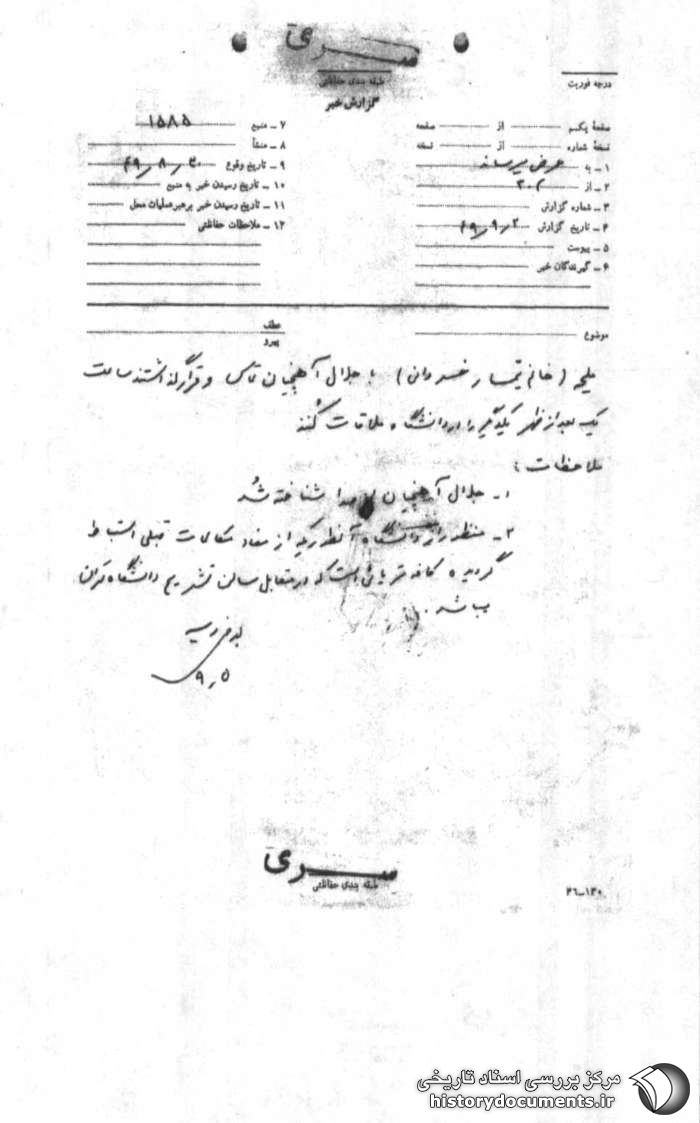 سری
طبقه بندی حفاظتی
گزارش خبر
درجه فوریت
صفحهٔ یکم از صفحه
نسخهٔ شماره از نسخه
۱ـ به عرض میرساند
۲ـ از ۳۰۲
۳ـ شماره گزارش
۴ـ تاریخ گزارش ۴۹٫۹٫۲
۵ـ پیوست
۶ـ گیرندگان خبر
۷ـ منبع ۱۵۸۵
۸ـ منشأ
۹ـ تاریخ وقوع ۴۹٫۸٫۳۰
۱۰ـ تاریخ رسیدن خبر به منبع
۱۱ـ تاریخ رسیدن خبر برهبر عملیات محل
۱۲ـ ملاحظات حفاظتی
موضوع
عطف
پیرو
ملیحه (خانم تیمسار خسروانی) با جلال آهنچیان تماس و قرار گذاشتند ساعت
یک بعد از ظهر یکدیگر را در دانشگاه ملاقات کنند
ملاحظات:
۱ـ جلال آهنچیان از صدا شناخته شد
۲ـ منظور از دانشگاه آنطوریکه از مفاد مکالمات قبلی استنباط
گردیده کافه تریائی است که در مقابل سالن تشریح دانشگاه تهران
میباشد.
بعرض رسید
۹٫۵
سری
طبقه بندی حفاظتی
۴۶ـ۱۳۰
مرکز بررسی اسناد تاریخی
historydocuments.ir